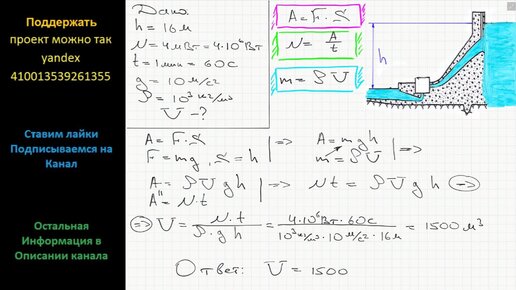 Поддержать
проект можно так
yandex
410013539261355
Ставим лайки
Подписываемся на
Канал
Остальная
Информация в
Описании канала
Дано:
h = 16м
N = 4мВт = 4·10⁶Вт
t = 1мин = 60с
g = 10 м/с²
ρ = 10³ кг/м³
V - ?
A = F · S
N = A/t
m = ρV
h
A = F·S
F = mg, S = h | => A = mgh
m = ρV | =>
A = ρVgh
A = N·t | => Nt = ρVgh =>
=> V = N·t / ρ·g·h = 4·10⁶Вт·60с / 10³кг/м³·10м/с²·16м = 1500 м³
Ответ: V = 1500